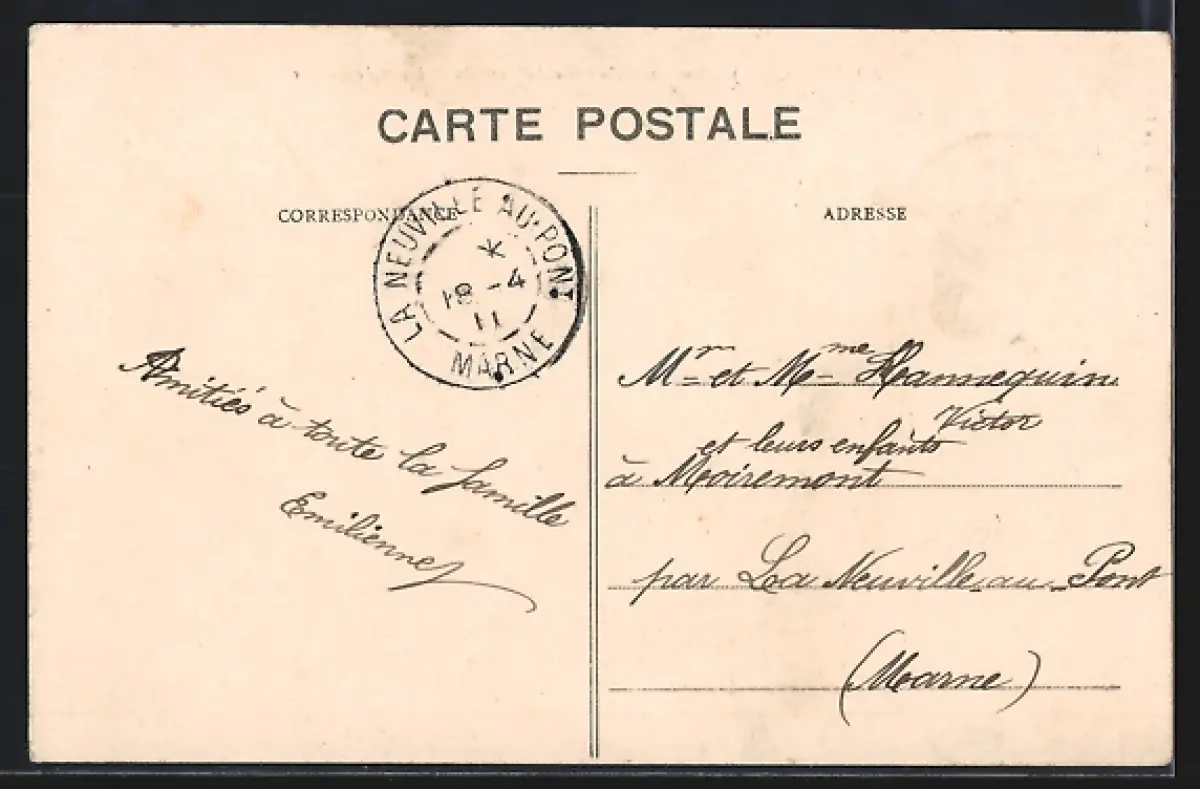 CARTE POSTALE
CORRESPONDANCE
ADRESSE
LA NEUVILLE AU-PONT
*
18 -4
11
MARNE
Amitiés à toute la famille
Emilienne
Mr et Mme Hannequin
Victor
et leurs enfants
à Moiremont
par La Neuville-au-Pont
(Marne)